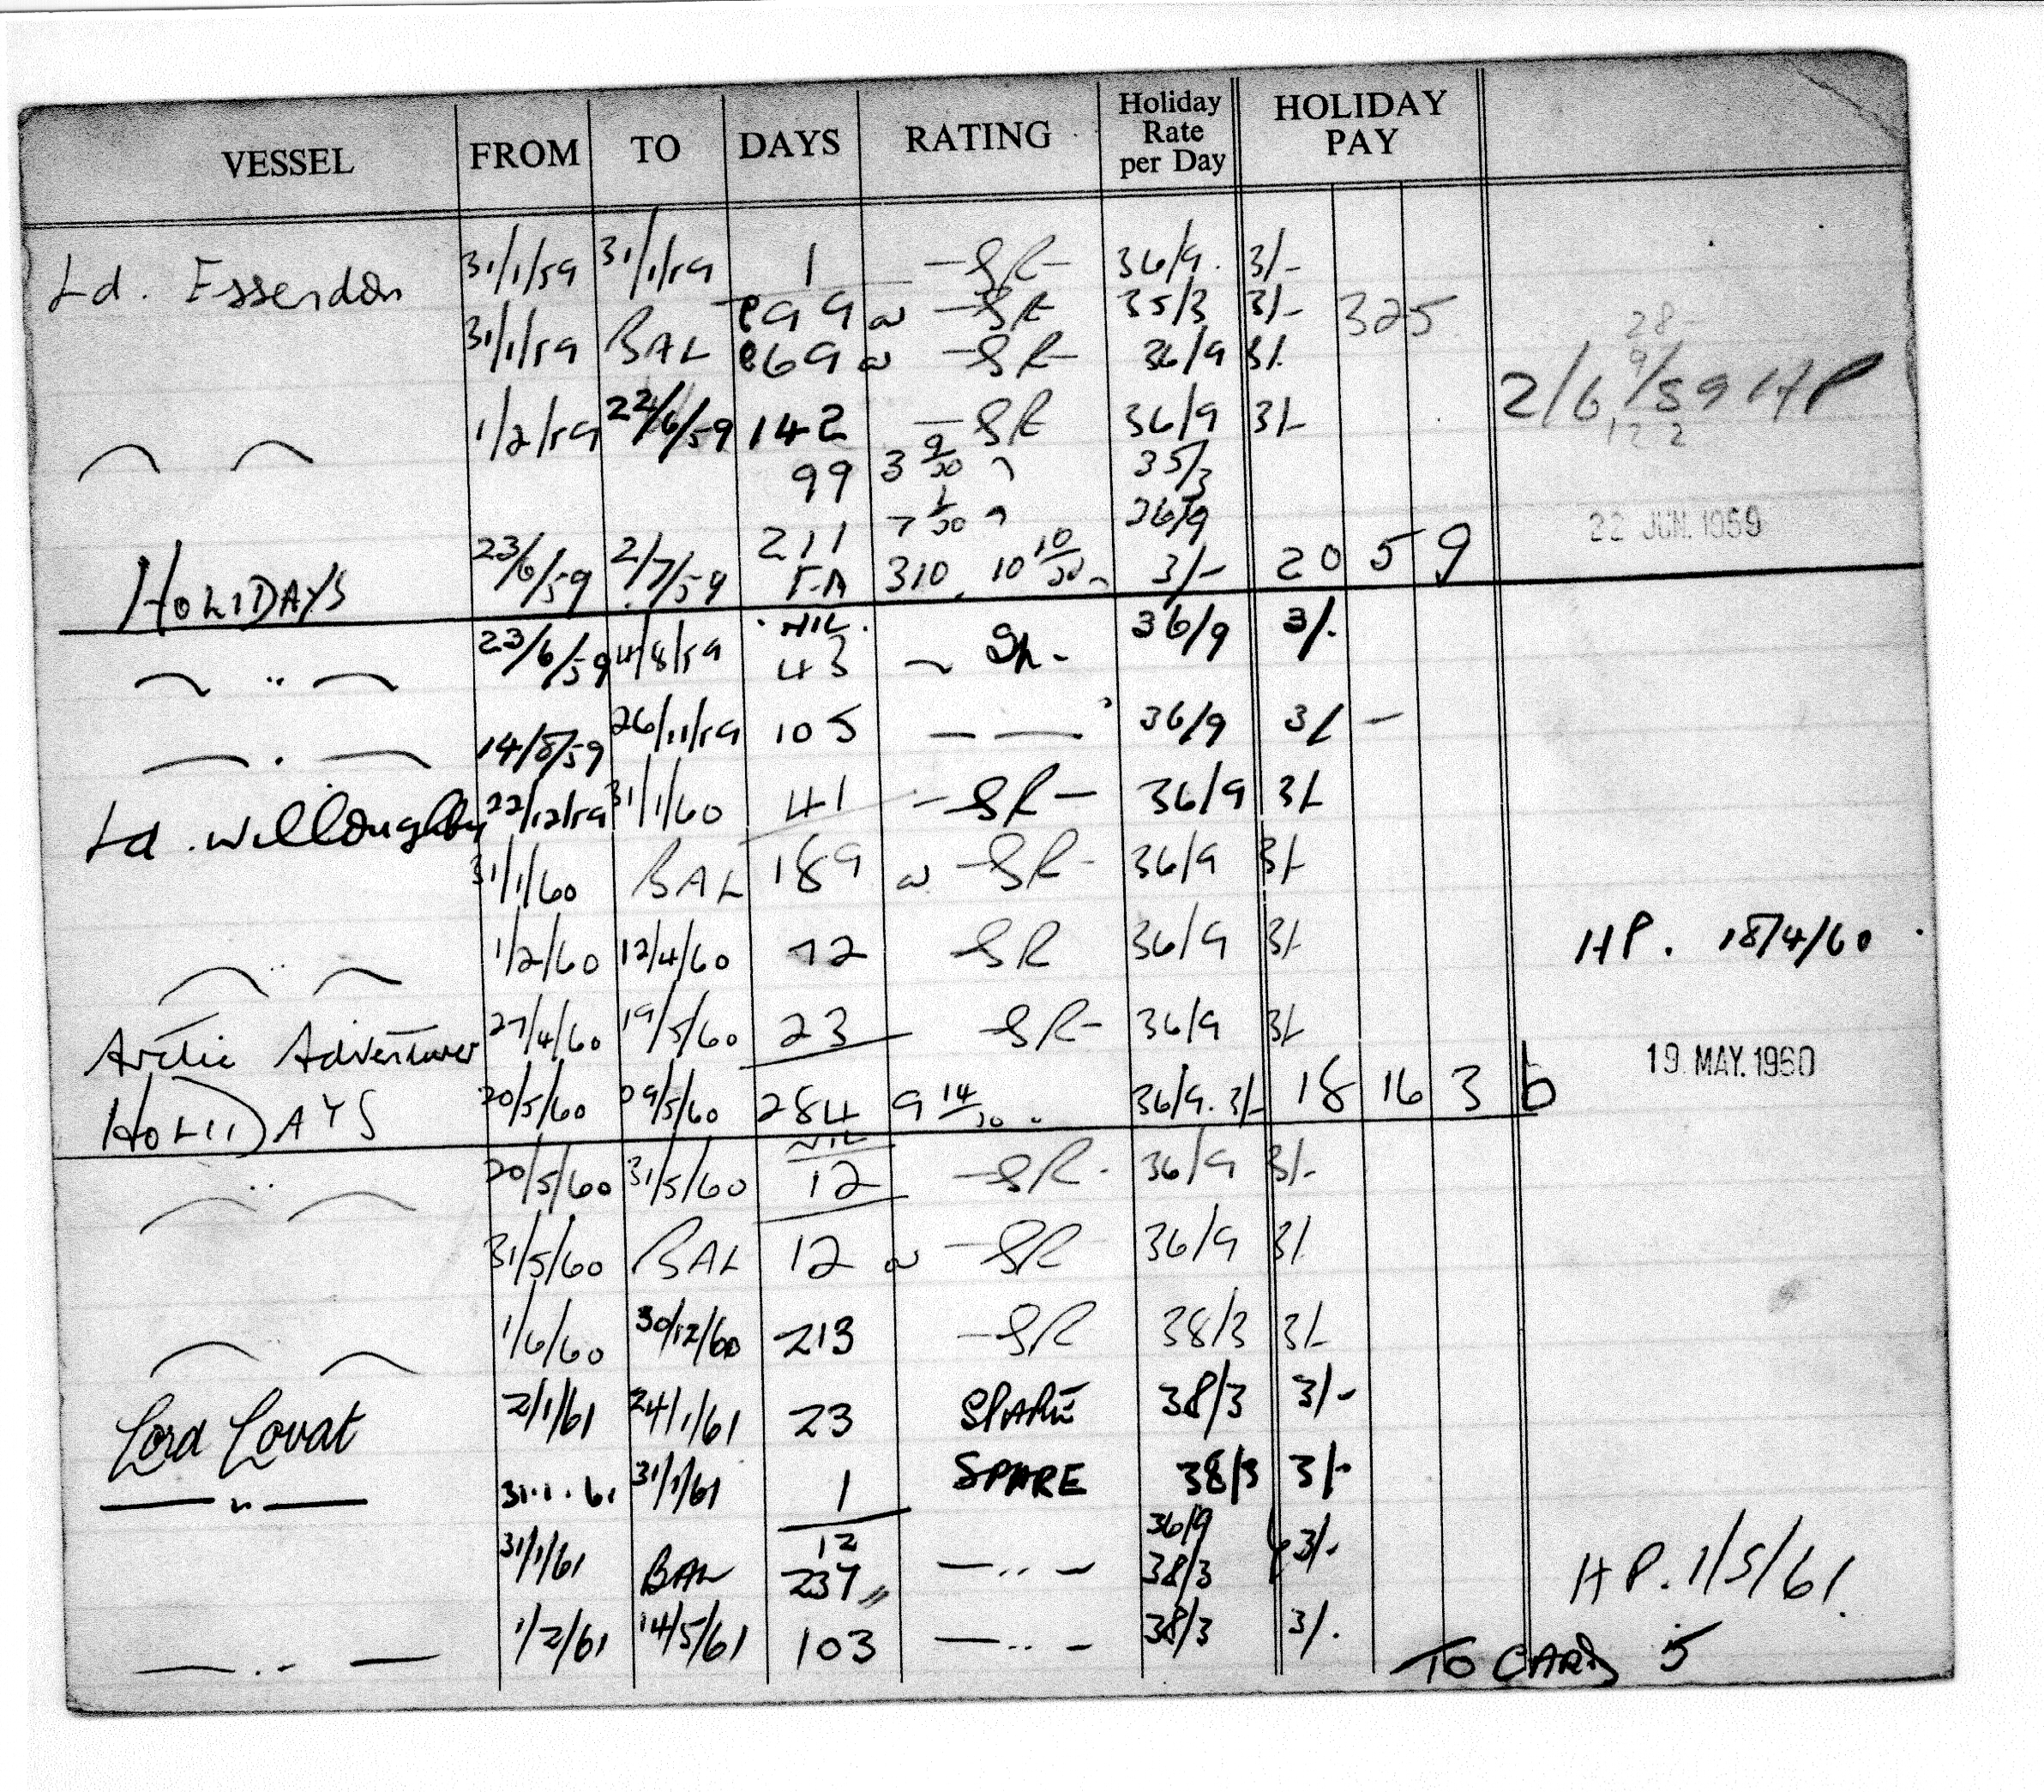 VESSEL FROM TO DAYS RATING Holiday Rate per Day HOLIDAY PAY
Ld. Essendon 31/1/59 31/1/59 1 — SR — 36/9. 3/-
99 — SR 35/3 3/- 325
31/1/59 BAL 69 — SR — 36/9 3/-
28
9
2/6/59 HP
12 2
1/2/59 22/6/59 142 — SR 36/9 3/-
99 3 9/30 35/3
211 7 1/30 36/9
22 JUN. 1959
HOLIDAYS 23/6/59 2/7/59 310 10 10/30 3/- 20 5 9
NIL
— " — 23/6/59 4/8/59 43 36/9 3/-
— . — 14/8/59 26/11/59 105 — — 36/9 3/-
Ld. Willoughby 22/12/59 31/1/60 41 — SR — 36/9 3/-
31/1/60 BAL 189 — SR — 36/9 3/-
— " — 1/2/60 12/4/60 72 SR 36/9 3/- HP. 18/4/60
Arctic Adventurer 27/4/60 19/5/60 23 — SR — 36/9 3/-
19 MAY. 1960
HOLIDAYS 20/5/60 29/5/60 284 9 14/30 36/9. 3/- 18 16 3 b
NIL
— " — 20/5/60 31/5/60 12 — SR - 36/9 3/-
31/5/60 BAL 12 — SR — 36/9 3/-
1/6/60 30/12/60 213 — SR 38/3 3/-
Lord Lovat 2/1/61 24/1/61 23 SPARE 38/3 3/-
— " — 31.1.61 31/1/61 1 SPARE 38/3 3/-
12 36/9
31/1/61 BAL 237 — " — 38/3 3/- HP. 1/5/61
— " — 1/2/61 14/5/61 103 — " — 38/3 3/-
TO CARD 5